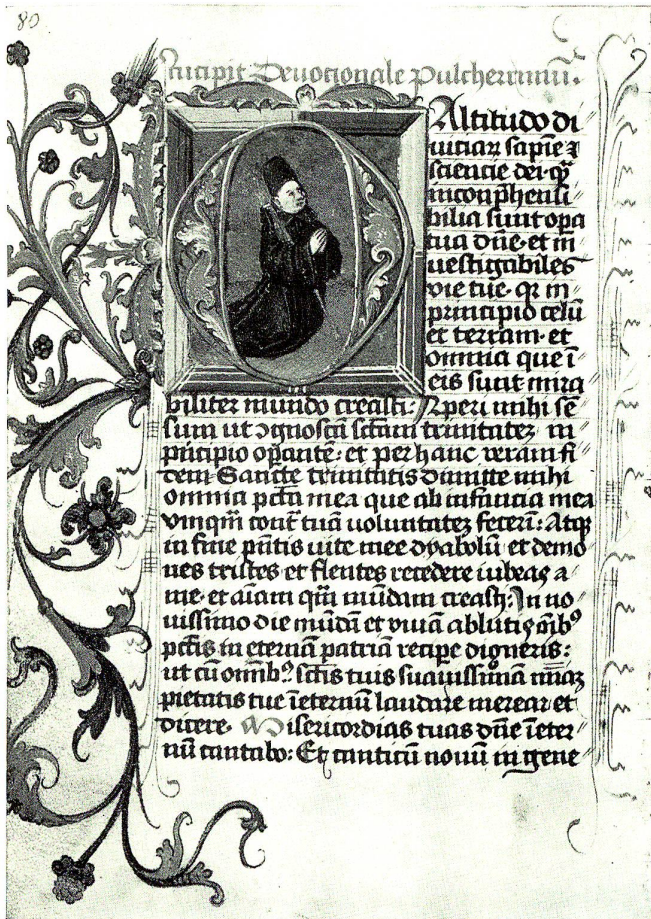 80
Incipit Deuocionale Pulcherrimū.
O Altitudo di
uiciaꝝ sapiē ⁊
sciencie dei· qͣ
inconp̄hensi
bilia sunt oꝑa
tua dn̄e· et in
uestigabiles
vie tue· qꝛ in
principio celū
et terram· et
omnia que ī
eis sunt mira
biliter mundo creasti: Aperi mihi sē
sum ut ꝯgnoscā sctām trinitatez in
principio oꝑantē: et per hanc veram fi
dem Sancte trinitatis dimitte mihi
omnia pctā mea que ab infancia mea
vnqm̄ cont̄ tuā uoluntatez fecerī: Atqꝫ
in fine pn̄tis uite mee dyabolū et demo
nes tristes et flentes recedere iubeas a
me· et aīam qm̄ mūdam creasti: In no
uissimo die mūdā et viuā ablutis oīb⁹
pctīs in eternā patriā recipe digneris:
ut cū omīb⁹ sctīs tuis suauissimā
pietatis tue īeternū laudare merear et
dicere· Misericordias tuas dn̄e īeter
nū cantabo: Et canticū nouū in gene